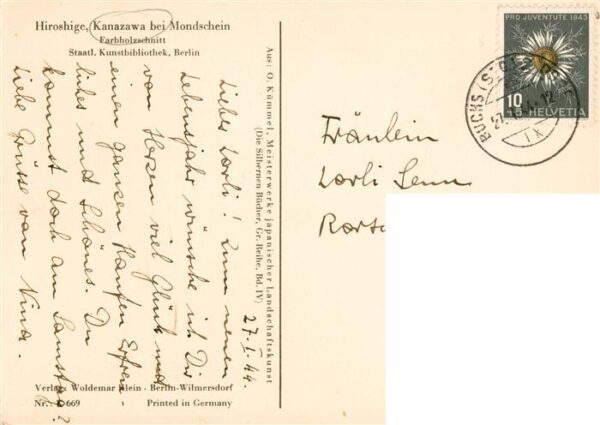 Hiroshige, Kanazawa bei Mondschein
Farbholzschnitt
Staatl. Kunstbibliothek, Berlin
Aus: O. Kümmel, Meisterwerke japanischer Landschaftskunst
(Die Silbernen Bücher, Gr. Reihe, Bd. IV)
27. I. 44.
Liebes Lorli! Zum neuen
Lebensjahr wünsche ich Dir
von Herzen viel Glück und
einen ganzen Haufen Erfreu-
liches und Schönes. Du
kommst doch am Samstag?
Liebe Grüsse von Nina.
Verlag: Woldemar Klein - Berlin-Wilmersdorf
Nr.: 669
Printed in Germany
PRO JUVENTUTE 1943
10
+5 HELVETIA
BUCHS
Fräulein
Lorli Senn